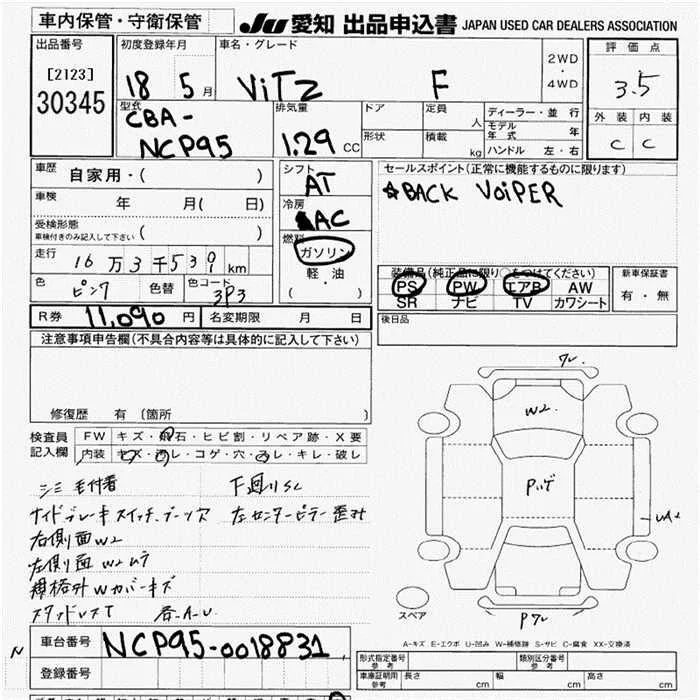 車内保管・守衛保管
JU 愛知 出品申込書 JAPAN USED CAR DEALERS ASSOCIATION
出品番号
[2123]
30345
初度登録年月
18 5 月
車名・グレード
ViTz F
2WD
・
4WD
評価点
3.5
外装 内装
C C
型式
CBA-
NCP95
排気量
1.29 CC
ドア
定員
人
形状
積載
kg
ディーラー・並行
モデル年式 年
ハンドル 左・右
車歴 自家用・( )
車検 年 月( 日)
受検形態
車検付きのみ記入して下さい ( )
走行 16万3千539 km
色 ピンク 色替 色コード 3P3
シフト
AT
冷房
AC
燃料
ガソリン
軽・油
( )
セールスポイント(正常に機能するものに限ります)
☆BACK VoiPER
装備品(純正品に限り○をつけてください)
PS PW エアB AW
SR ナビ TV カワシート
新車保証書
有・無
後日品
R券 11,090 円 名変期限 月 日
注意事項申告欄(不具合内容等は具体的に記入して下さい)
修復歴 有 (箇所 )
検査員記入欄
FW キズ・飛石・ヒビ割・リペア跡・X要
内装 キズ・汚レ・コゲ・穴・スレ・キレ・破レ
シミ 毛付着 下回りSC
サイドブレーキスイッチ、ブーツ穴 左センターピラー歪み
右側面W2
左側面W2ムラ
規格外Wカバーキズ
スタッドレスT 各A・U
ワレ
W2
Pハゲ
UA2
Pワレ
スペア
A-キズ E-エクボ U-凹み W-補修跡 S-サビ C-腐食 XX-交換済
N
車台番号 NCP95-0018831
登録番号
形式指定番号 参考
類別区分番号 参考
車庫証明用 参考 長さ cm 幅 cm 高さ cm